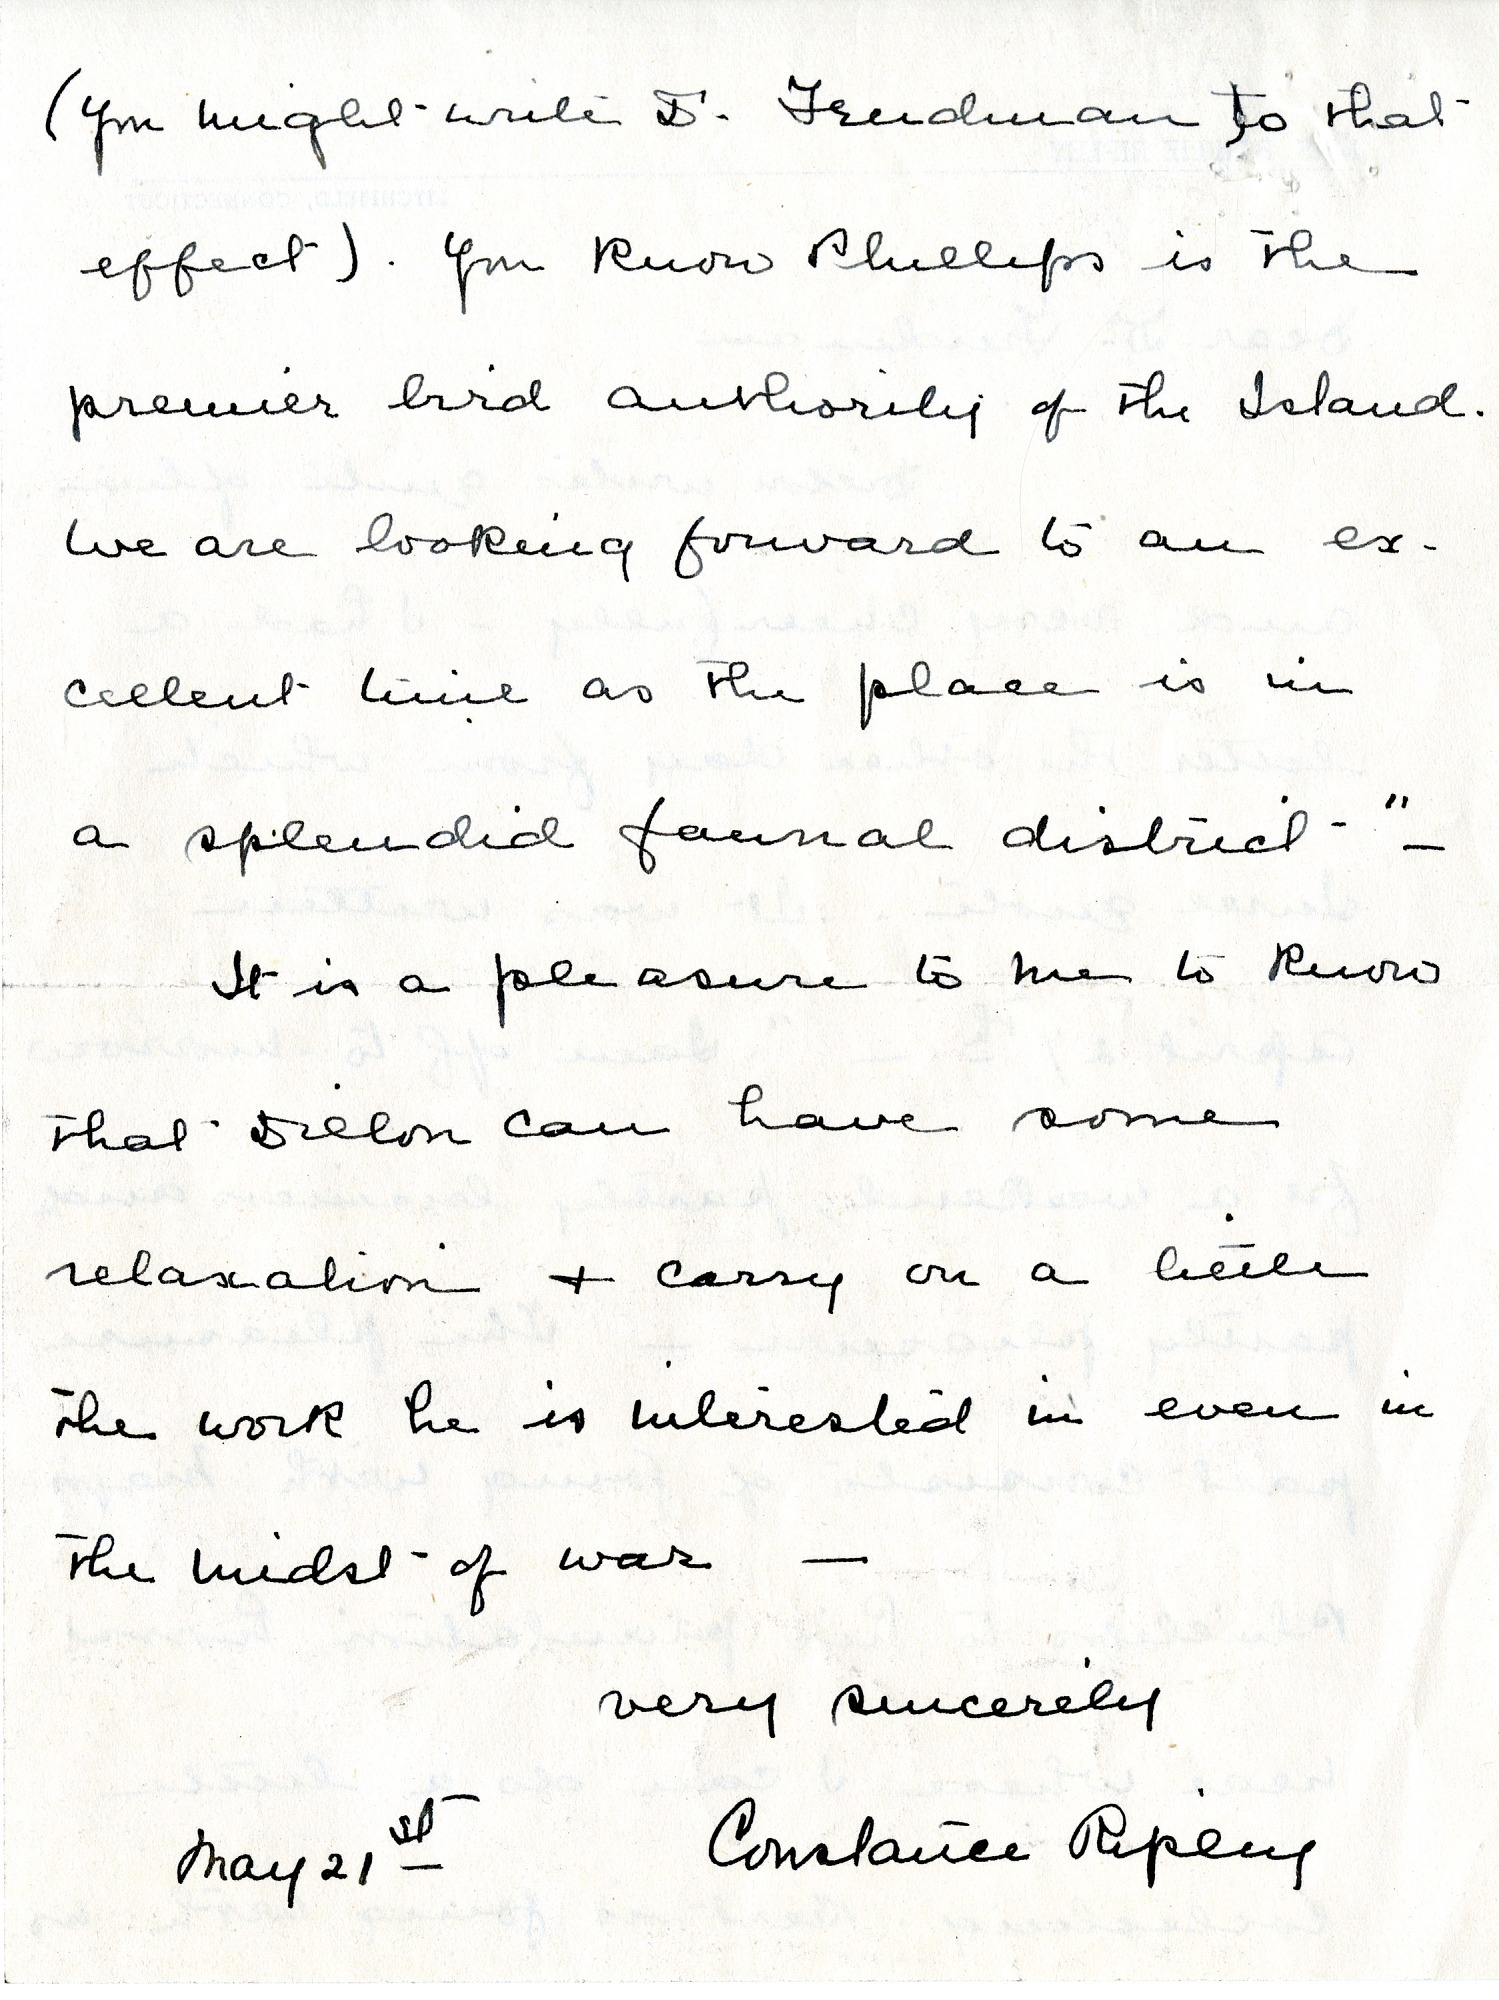 (You might write D. Friedman to that
effect). You know Phillips is the
premier bird authority of the Island.
We are looking forward to an ex-
cellent time as the place is in
a splendid faunal district" —
It is a pleasure to me to know
that Dillon can have some
relaxation + carry on a little
the work he is interested in even in
the midst of war —
very sincerely
May 21st Constance Ripley